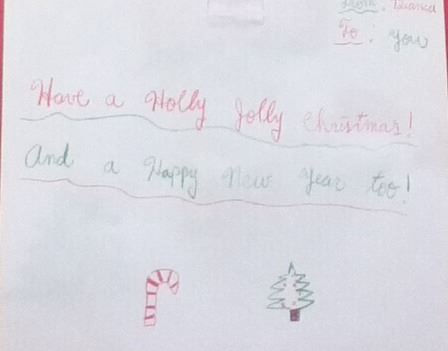 From: Bianca
To: You
Have a Holly Jolly Christmas!
And a Happy New Year too!